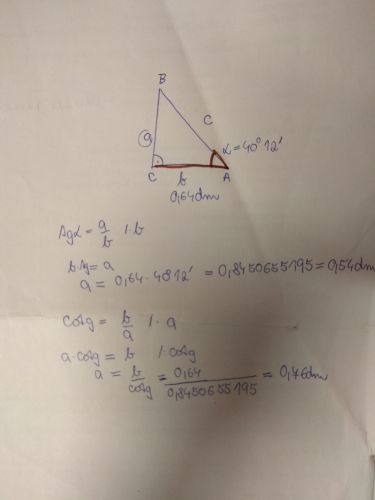 B
c
a
α = 40° 12'
C b A
0,64 dm
tg α = a/b / · b
b tg = a
a = 0,64 · 40° 12' = 0,8450655195 = 0,54 dm
cotg = b/a / · a
a · cotg = b / · cotg
a = b/cotg = 0,64/0,8450655195 = 0,76 dm